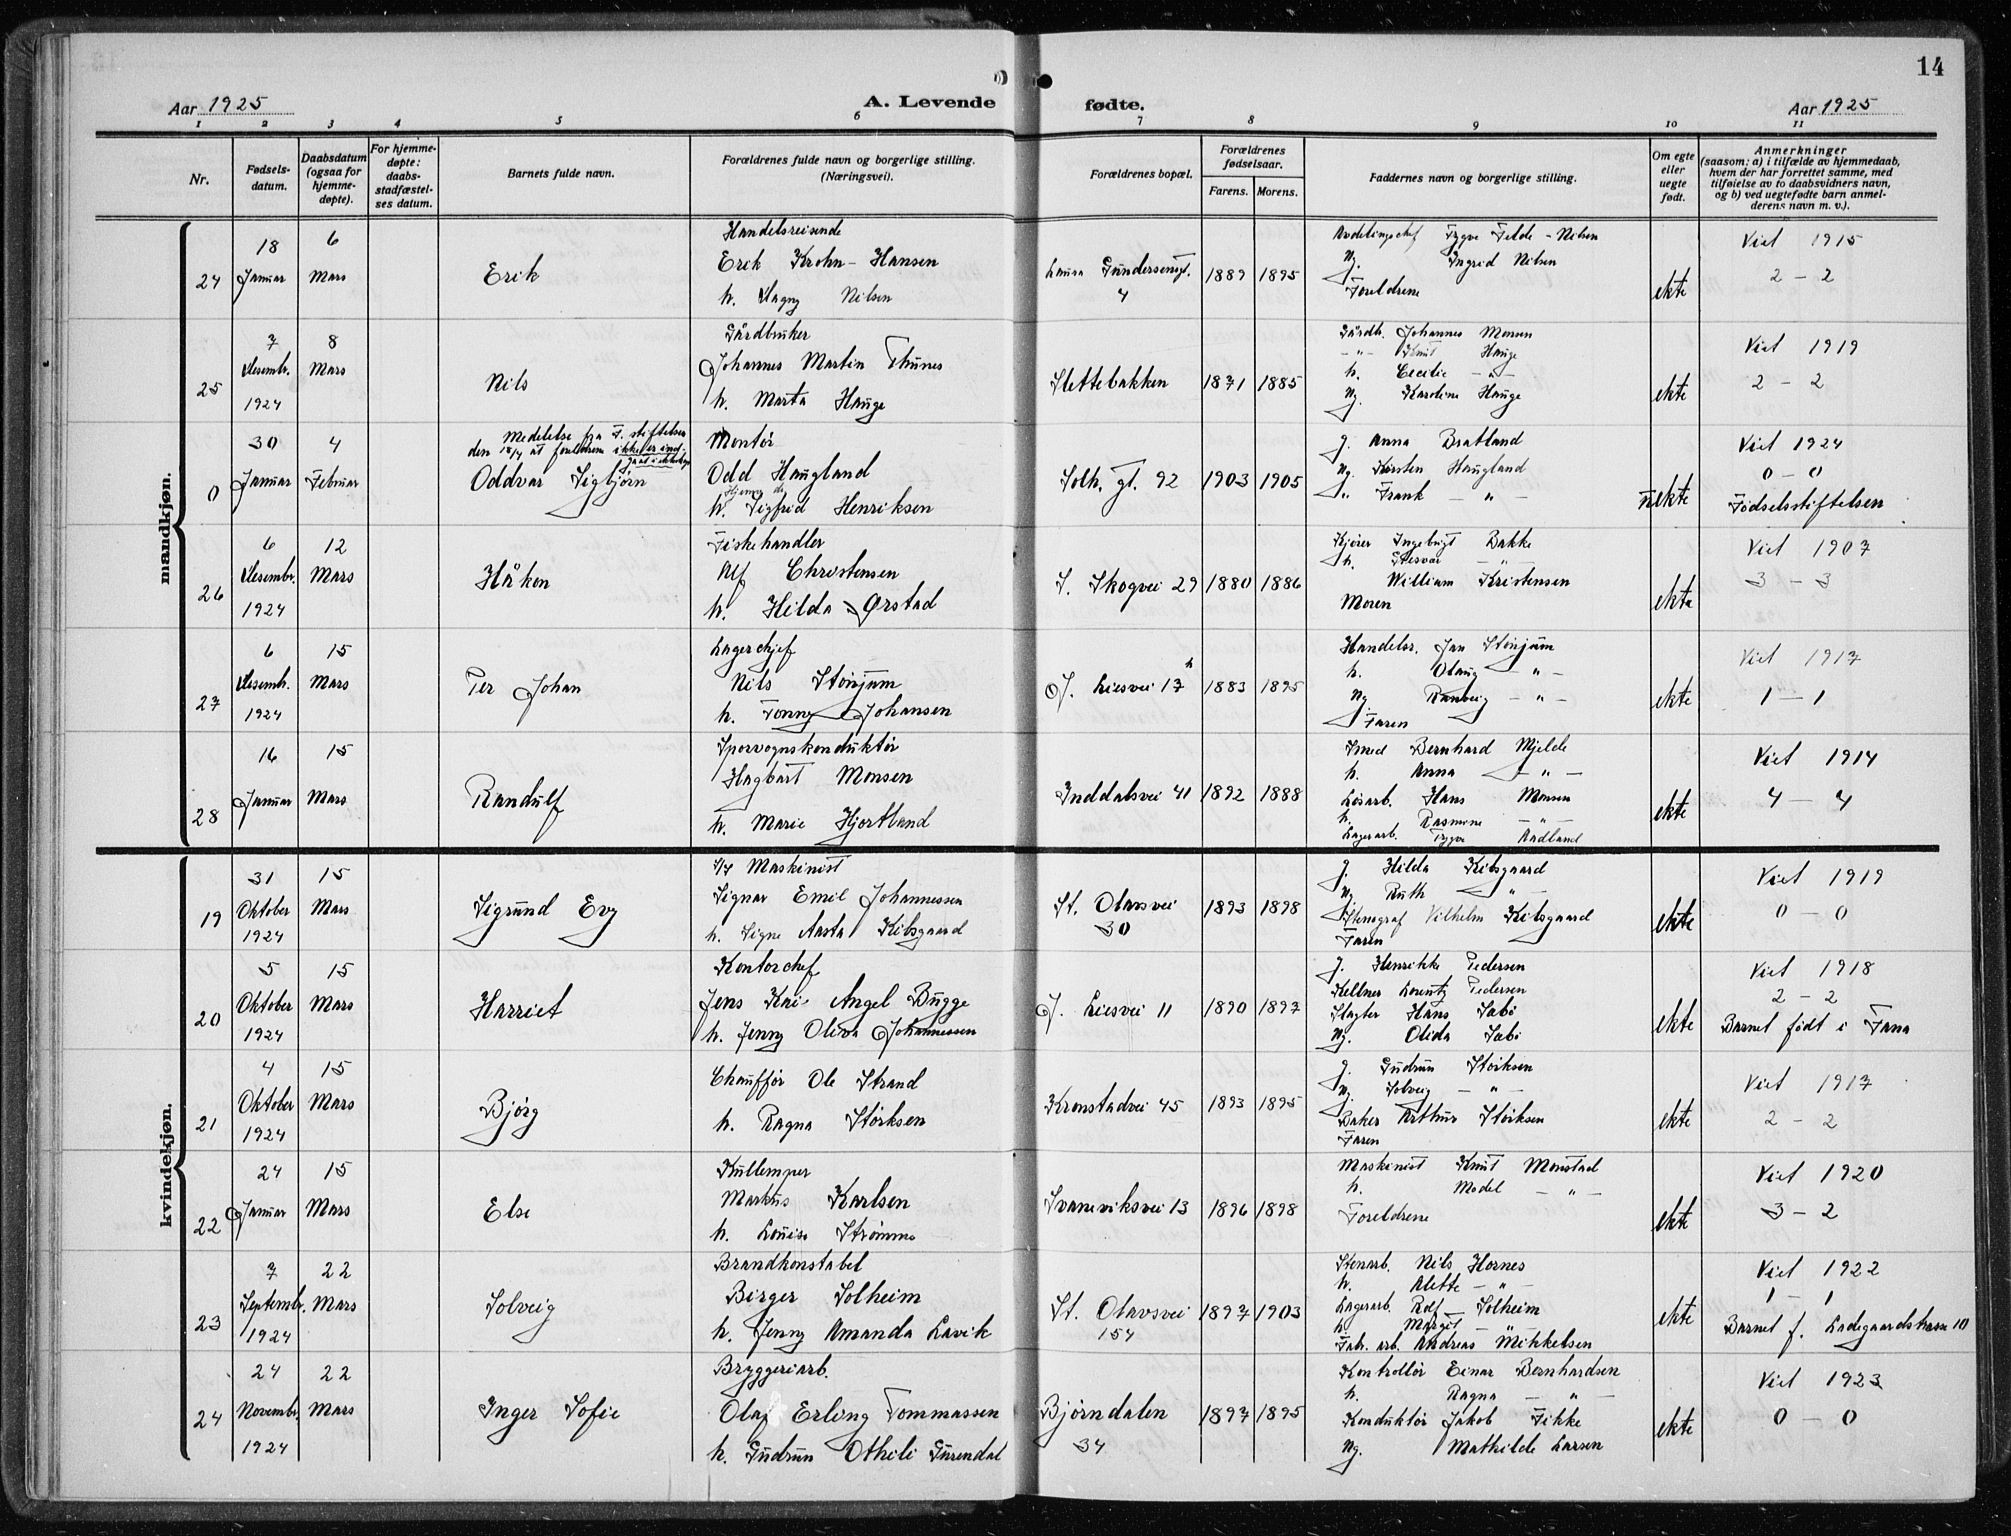 14
Aar 1925
A. Levende fødte.
Aar 1925
1 2 3 4 5 6 7 8 9 10 11
Nr.
Fødsels-
datum.
Daabsdatum
(ogsaa for
hjemme-
døpte).
For hjemme-
døpte:
daabs-
stadfæstel-
ses datum.
Barnets fulde navn.
Forældrenes fulde navn og borgerlige stilling.
(Næringsvei).
Forældrenes bopæl.
Forældrenes
fødselsaar.
Farens. Morens.
Faddernes navn og borgerlige stilling.
Om egte
eller
uegte
født.
Anmerkninger
(saasom: a) i tilfælde av hjemmedaab,
hvem der har forrettet samme, med
tilføielse av to daabsvidners navn,
og b) ved uegtefødte barn anmel-
derens navn m. v.).
mandkjøn.
24
18
Januar
6
Mars
Erik
Handelsreisende
Erik Krohn-Hansen
h. Dagny Nilsen
Laura Gundersensgt.
4
1889 1895
Avdelingschef Trygve Felde-Nilsen
Ug. Ingrid Nilsen
Foreldrene
ekte
Viet 1915
2 - 2
25
7
Desembr.
1924
8
Mars
Nils
Gårdbruker
Johannes Martin Thunes
h. Marta Hauge
Slettebakken
1871 1885
Gårdb. Johannes Monsen
- " - Knut Hauge
h. Cecilie - " -
Ug. Karoline Hauge
ekte
Viet 1919
2 - 2
0
30
Januar
4
Februar
Medelelse fra F. stiftelsen
den 18/4 at foreldrene ikke er ind-
gaat i ekteskap
Oddvar Sigbjørn
Montør
Odd Haugland
Hjemme da
h. Sigfrid Henriksen
Solh. gt. 92
1903 1905
J. Anna Bratland
Ug. Kirsten Haugland
" Frank - " -
Uekte
Viet 1924
0 - 0
Fødselsstiftelsen
26
6
Desembr.
1924
12
Mars
Håkon
Fiskehandler
Alf Christensen
h. Hilda Ørstad
S. Skogvei 29
1880 1886
Kjører Ingebrigt Bakke
h. - " -
William Kristensen
Moren
ekte
Viet 1907
3 - 3
27
6
Desemb.
1924
15
Mars
Per Johan
Lagerchef
Nils Stønjum
h. Fonny Johansen
J. Liesvei 17 h
1883 1895
Handelsr. Jan Stønjum
h. Olaug - " -
Ug. Ranveig - " -
Faren
ekte
Viet 1917
1 - 1
28
16
Januar
15
Mars
Randulf
Sporvognskonduktør
Hagbart Monsen
h. Marie Hjortland
Inddalsvei 41
1892 1888
Smed Bernhard Mjelde
h. Anna - " -
Løsarb. Hans Monsen
h. Rasmine - " -
Lagerarb. Trygve Radland
ekte
Viet 1914
4 - 4
kvindekjøn.
19
31
Oktober
1924
15
Mars
Sigrund Evy
Maskinist
Signar Emil Johannessen
h. Signe Aasta Kibsgaard
St. Olavsvei
30
1893 1898
J. Hilda Kibsgaard
Ug. Ruth - " -
Stenograf Vilhelm Kibsgaard
Faren
ekte
Viet 1919
0 - 0
20
5
Oktober
1924
15
Mars
Harriet
Kontorchef
Jens Kai Angel Bugge
h. Jenny Oliva Johannessen
J. Liesvei 11
1890 1897
J. Henrikke Pedersen
Kellner Lorentz Pedersen
Slagter Hans Sæbø
Ug. Olida Sæbø
ekte
Viet 1918
2 - 2
Barnet født i Fana
21
4
Oktober
1924
15
Mars
Bjørg
Chauffør Ole Strand
h. Ragna Størksen
Kronstadvei 45
1893 1895
J. Gudrun Størksen
Ug. Solveig - " -
Baker Arthur Størksen
Faren
ekte
Viet 1917
2 - 2
22
24
Januar
15
Mars
Else
Kullemper
Markus Karlsen
h. Louise Strømme
Svaneviksvei 13
1896 1898
Maskinist Knut Monstad
h. Model - " -
Foreldrene
ekte
Viet 1920
3 - 2
23
7
Septembr.
1924
22
Mars
Solveig
Brandkonstabel
Birger Solheim
h. Jenny Amanda Lavik
St. Olavsvei
154
1897 1903
Stenarb. Nils Hornes
h. Alette - " -
Lagerarb. Rolf Solheim
h. Margit - " -
Fabr. arb. Andreas Mikkelsen
ekte
Viet 1922
1 - 1
Barnet f. Ladegaardsterasse 10
24
24
Novembr.
1924
22
Mars
Inger Sofie
Bryggeriarb.
Olaf Erling Tommassen
h. Gudrun Othili Furendal
Bjørndalen
34
1897 1895
Kontrollør Einar Bernhardsen
h. Ragna - " -
Konduktør Jakob Fikke
Ug. Mathilde Larsen
ekte
Viet 1923
0 - 0